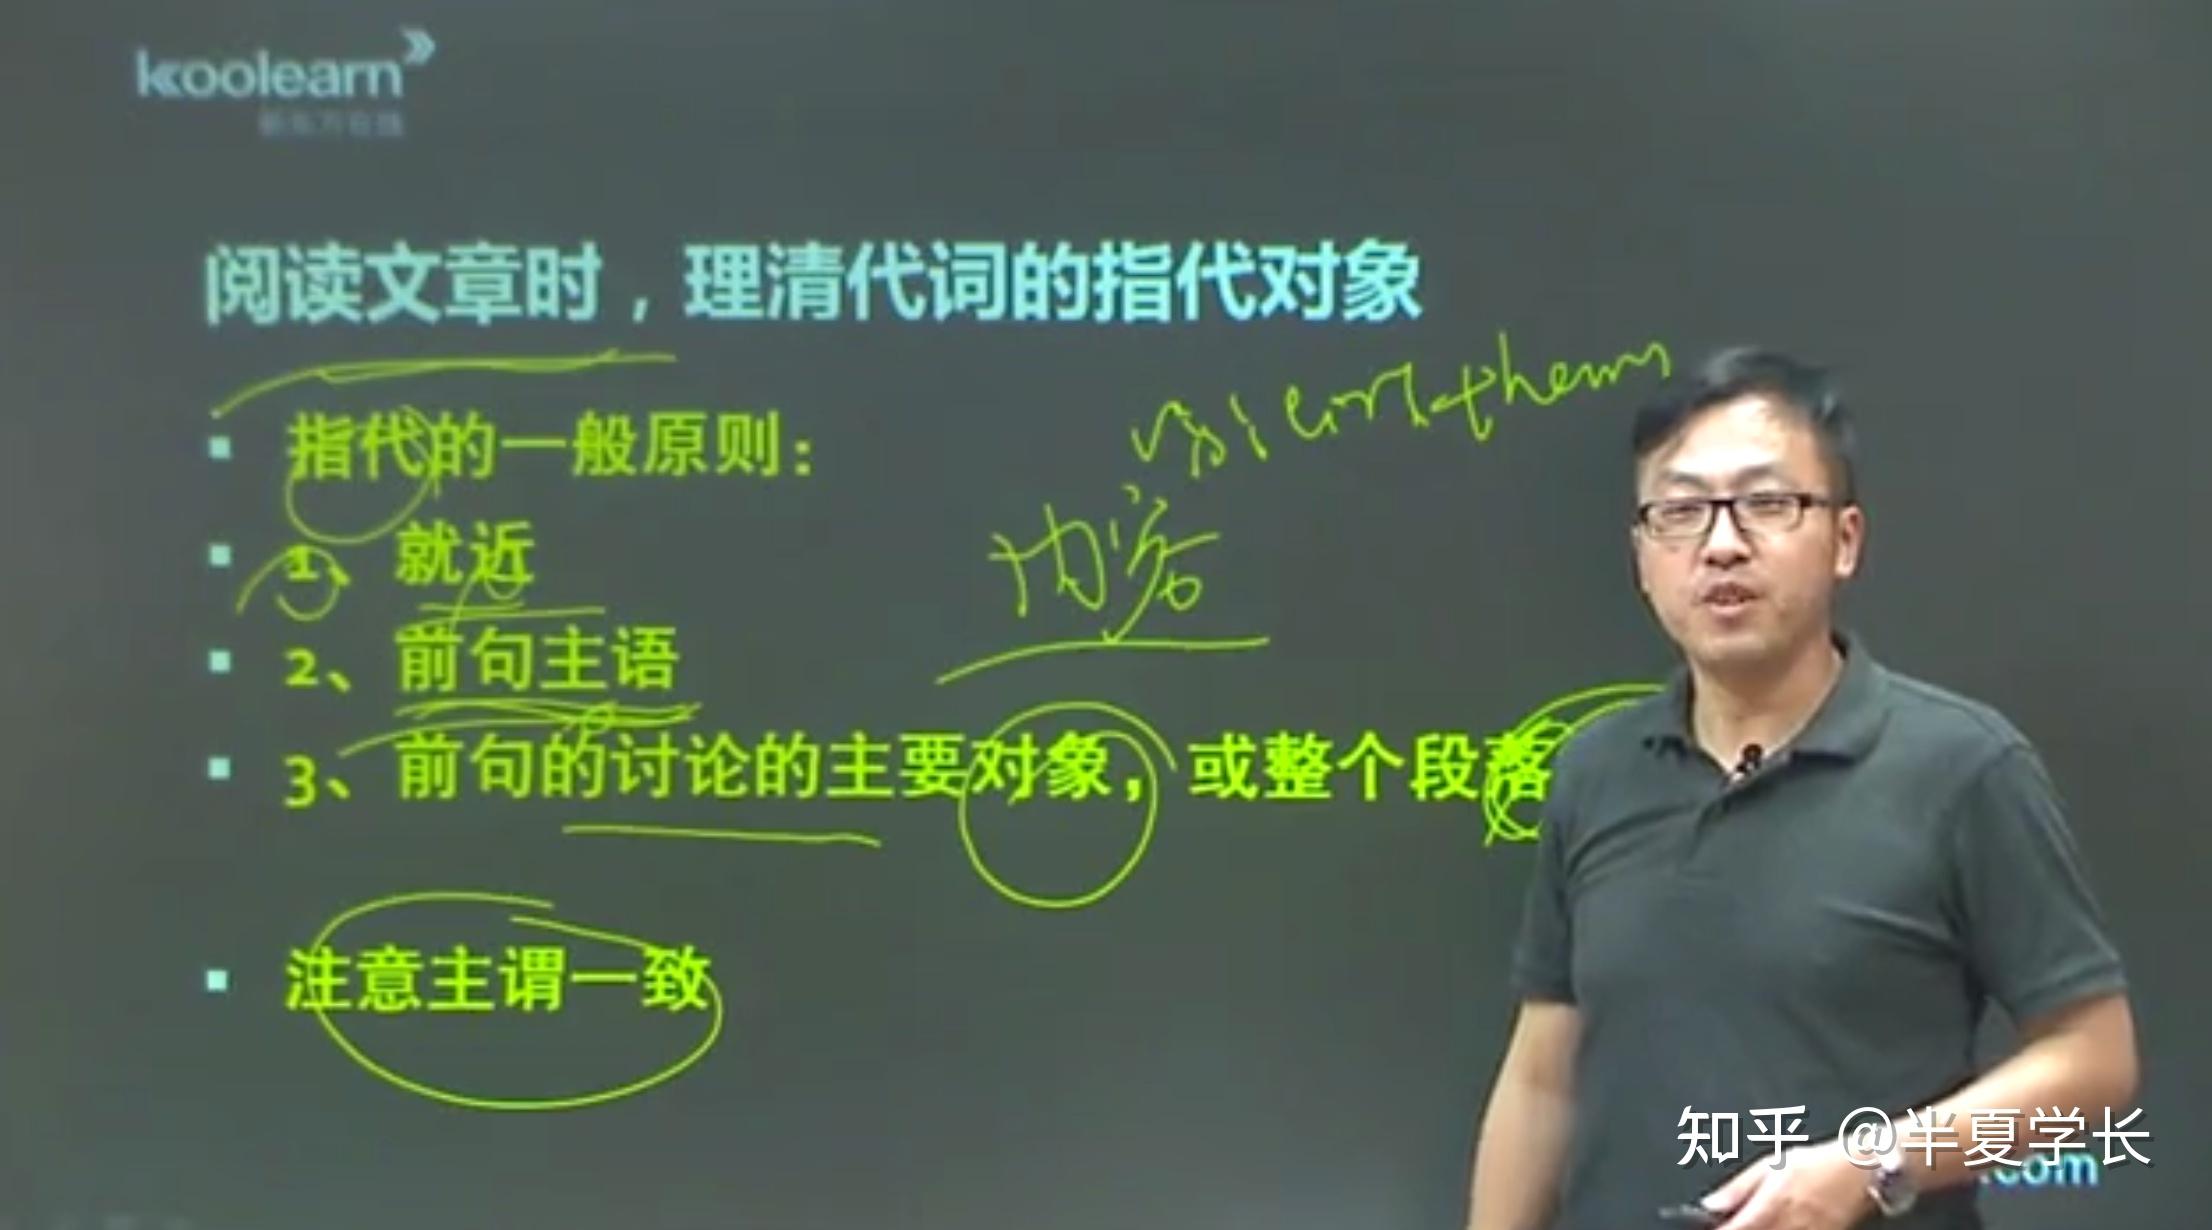 koolearn
新东方在线
阅读文章时，理清代词的指代对象
指代的一般原则：
1、就近
2、前句主语
3、前句的讨论的主要对象，或整个段落
注意主谓一致
知乎 @半夏学长
.com